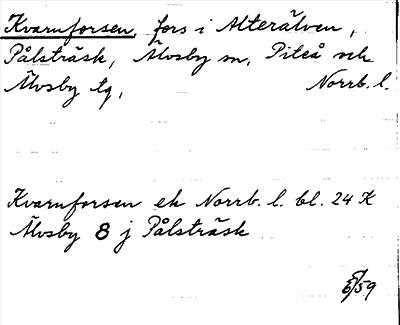 Kvarnforsen, fors i Alterälven,
Pålsträsk, Älvsby sn, Piteå och
Älvsby tg, Norrb. l.
Kvarnforsen ek Norrb. l. bl. 24 K
Älvsby 8 j Pålsträsk
5/59